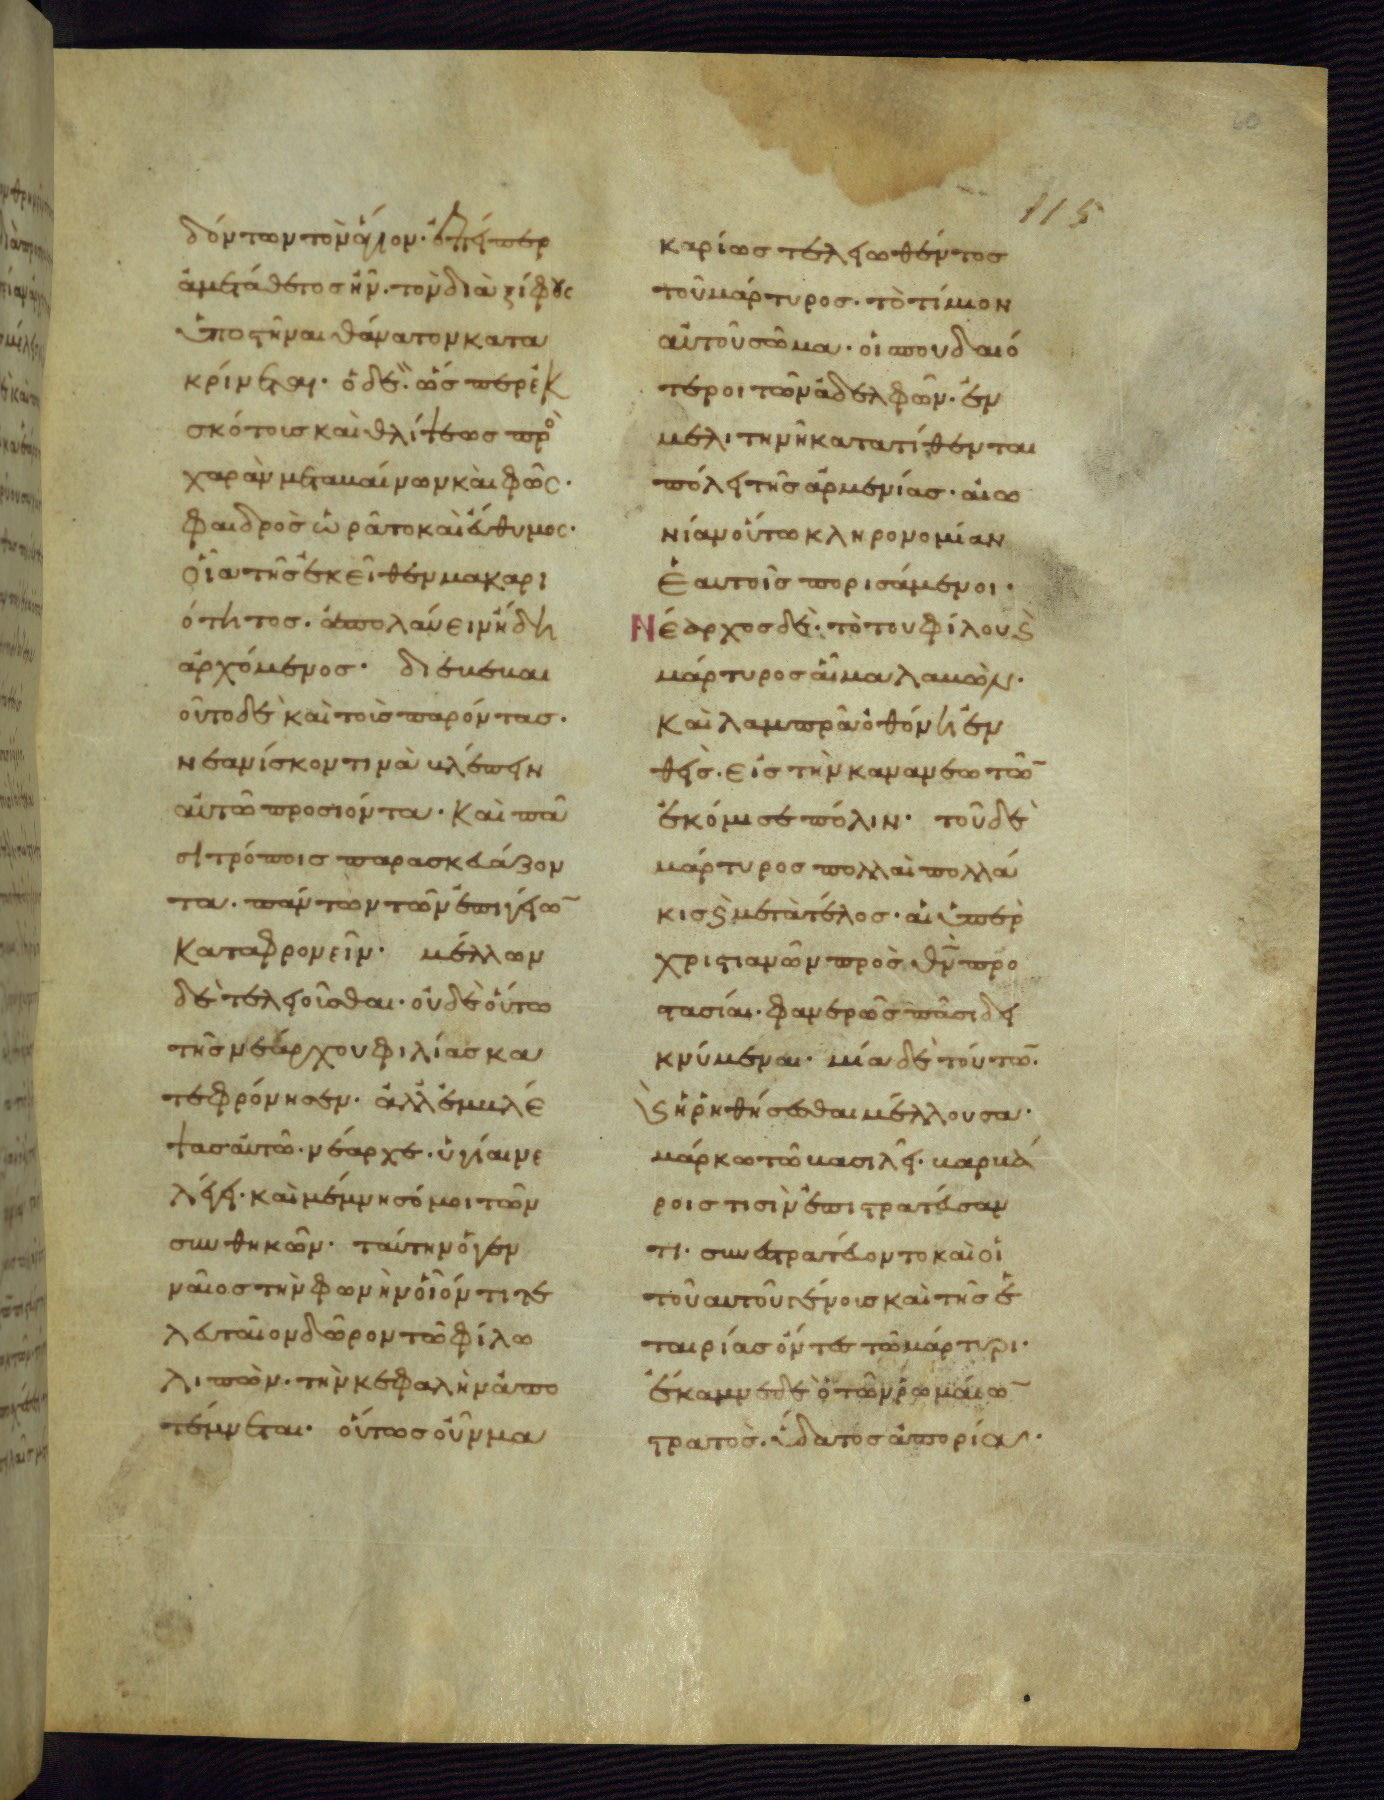 115
60
δόντων τὸν ἅγιον· ὅτι ἥπερ
ἀμετάθετος ἦν. τὸν διὰ ξίφους
ὑποστῆναι θάνατον κατα
κρίνεται· ὁ δὲ· ὥσπερ ἐκ
σκότους καὶ θλίψεως πρὸ
χαρὰν μεταβαίνων καὶ φῶς·
φαιδρὸς ὡρᾶτο καὶ εύθυμος·
οἷα τῆς ἐκεῖθεν μακαρι
ότητος. ἀπολαύειν ἤδη
ἀρχόμενος· διεβεβαι
οῦτο δὲ καὶ τοῖς παρόντας·
νεανίσκον τινὰ βλέπειν
αὐτῶ προσιόντα· καὶ πᾶ
σι τρόποις παρασκευάζον
τα. πάντων τῶν ἐπιγείω̄
καταφρονεῖν· μέλλων
δὲ τελειοῦσθαι· οὐδὲ οὕτω
τῆς νεάρχου φιλίας κα
τεφρόνησεν· ἀλλ' ἐμβλέ
ψας αὐτῶ· νέαρχε· ὑγίαινε
λέγει· καὶ μέμνησό μοι τῶν
συνθηκῶν· ταύτην ὁ γεν
ναῖος τὴν φωνὴν οἷόν τι τε
λευταῖον δῶρον τῶ φίλω
λιπὼν· τὴν κεφαλὴν ἀπο
τέμνεται· οὕτως οὖν μα
καρίως τελειωθέντος
τοῦ μάρτυρος· τὸ τίμιον
αὐτοῦ σῶμα· οἱ σπουδαιό
τεροι τῶν ἀδελφῶν· ἐν
μελιτηνῆ κατατίθενται
πόλει τῆς ἀρμενίας· αἰω
νίαν οὕτω κληρονομίαν
ἑαυτοῖς πορισάμενοι·
Νέαρχος δὲ· τὸ τοῦ φίλου ϗ
μάρτυρος αἷμα λαβὼν·
καὶ λαμπρᾶ ὀθόνη ἐν
θεὶς· εἰς τὴν καναναιωτῶ̄
ἐκόμισε πόλιν· τοῦ δὲ
μάρτυρος πολλαὶ πολλά
κις ϗ μετὰ τέλος· αἱ ὑπὲρ
χριστιανῶν πρὸς θν̄ προ
στασίαι· φανερῶς πᾶσι δει
κνύμεναι· μία δὲ τούτω̄·
ϗ ἡ ῥηθήσεσθαι μέλλουσα·
μάρκω τῶ βασιλεῖ· βαρβά
ροις τισὶν ἐπιστρατεύσαν
τι· συνεστρατεύοντο καὶ οἱ
τοῦ αυτοῦ γένους καὶ τῆς ἑ
ταιρίας ὄντες τῶ μάρτυρι·
ἔκαμνε δὲ ὁ τῶν ῥωμαίω̄
στρατὸς· ὕδατος ἀπορία·